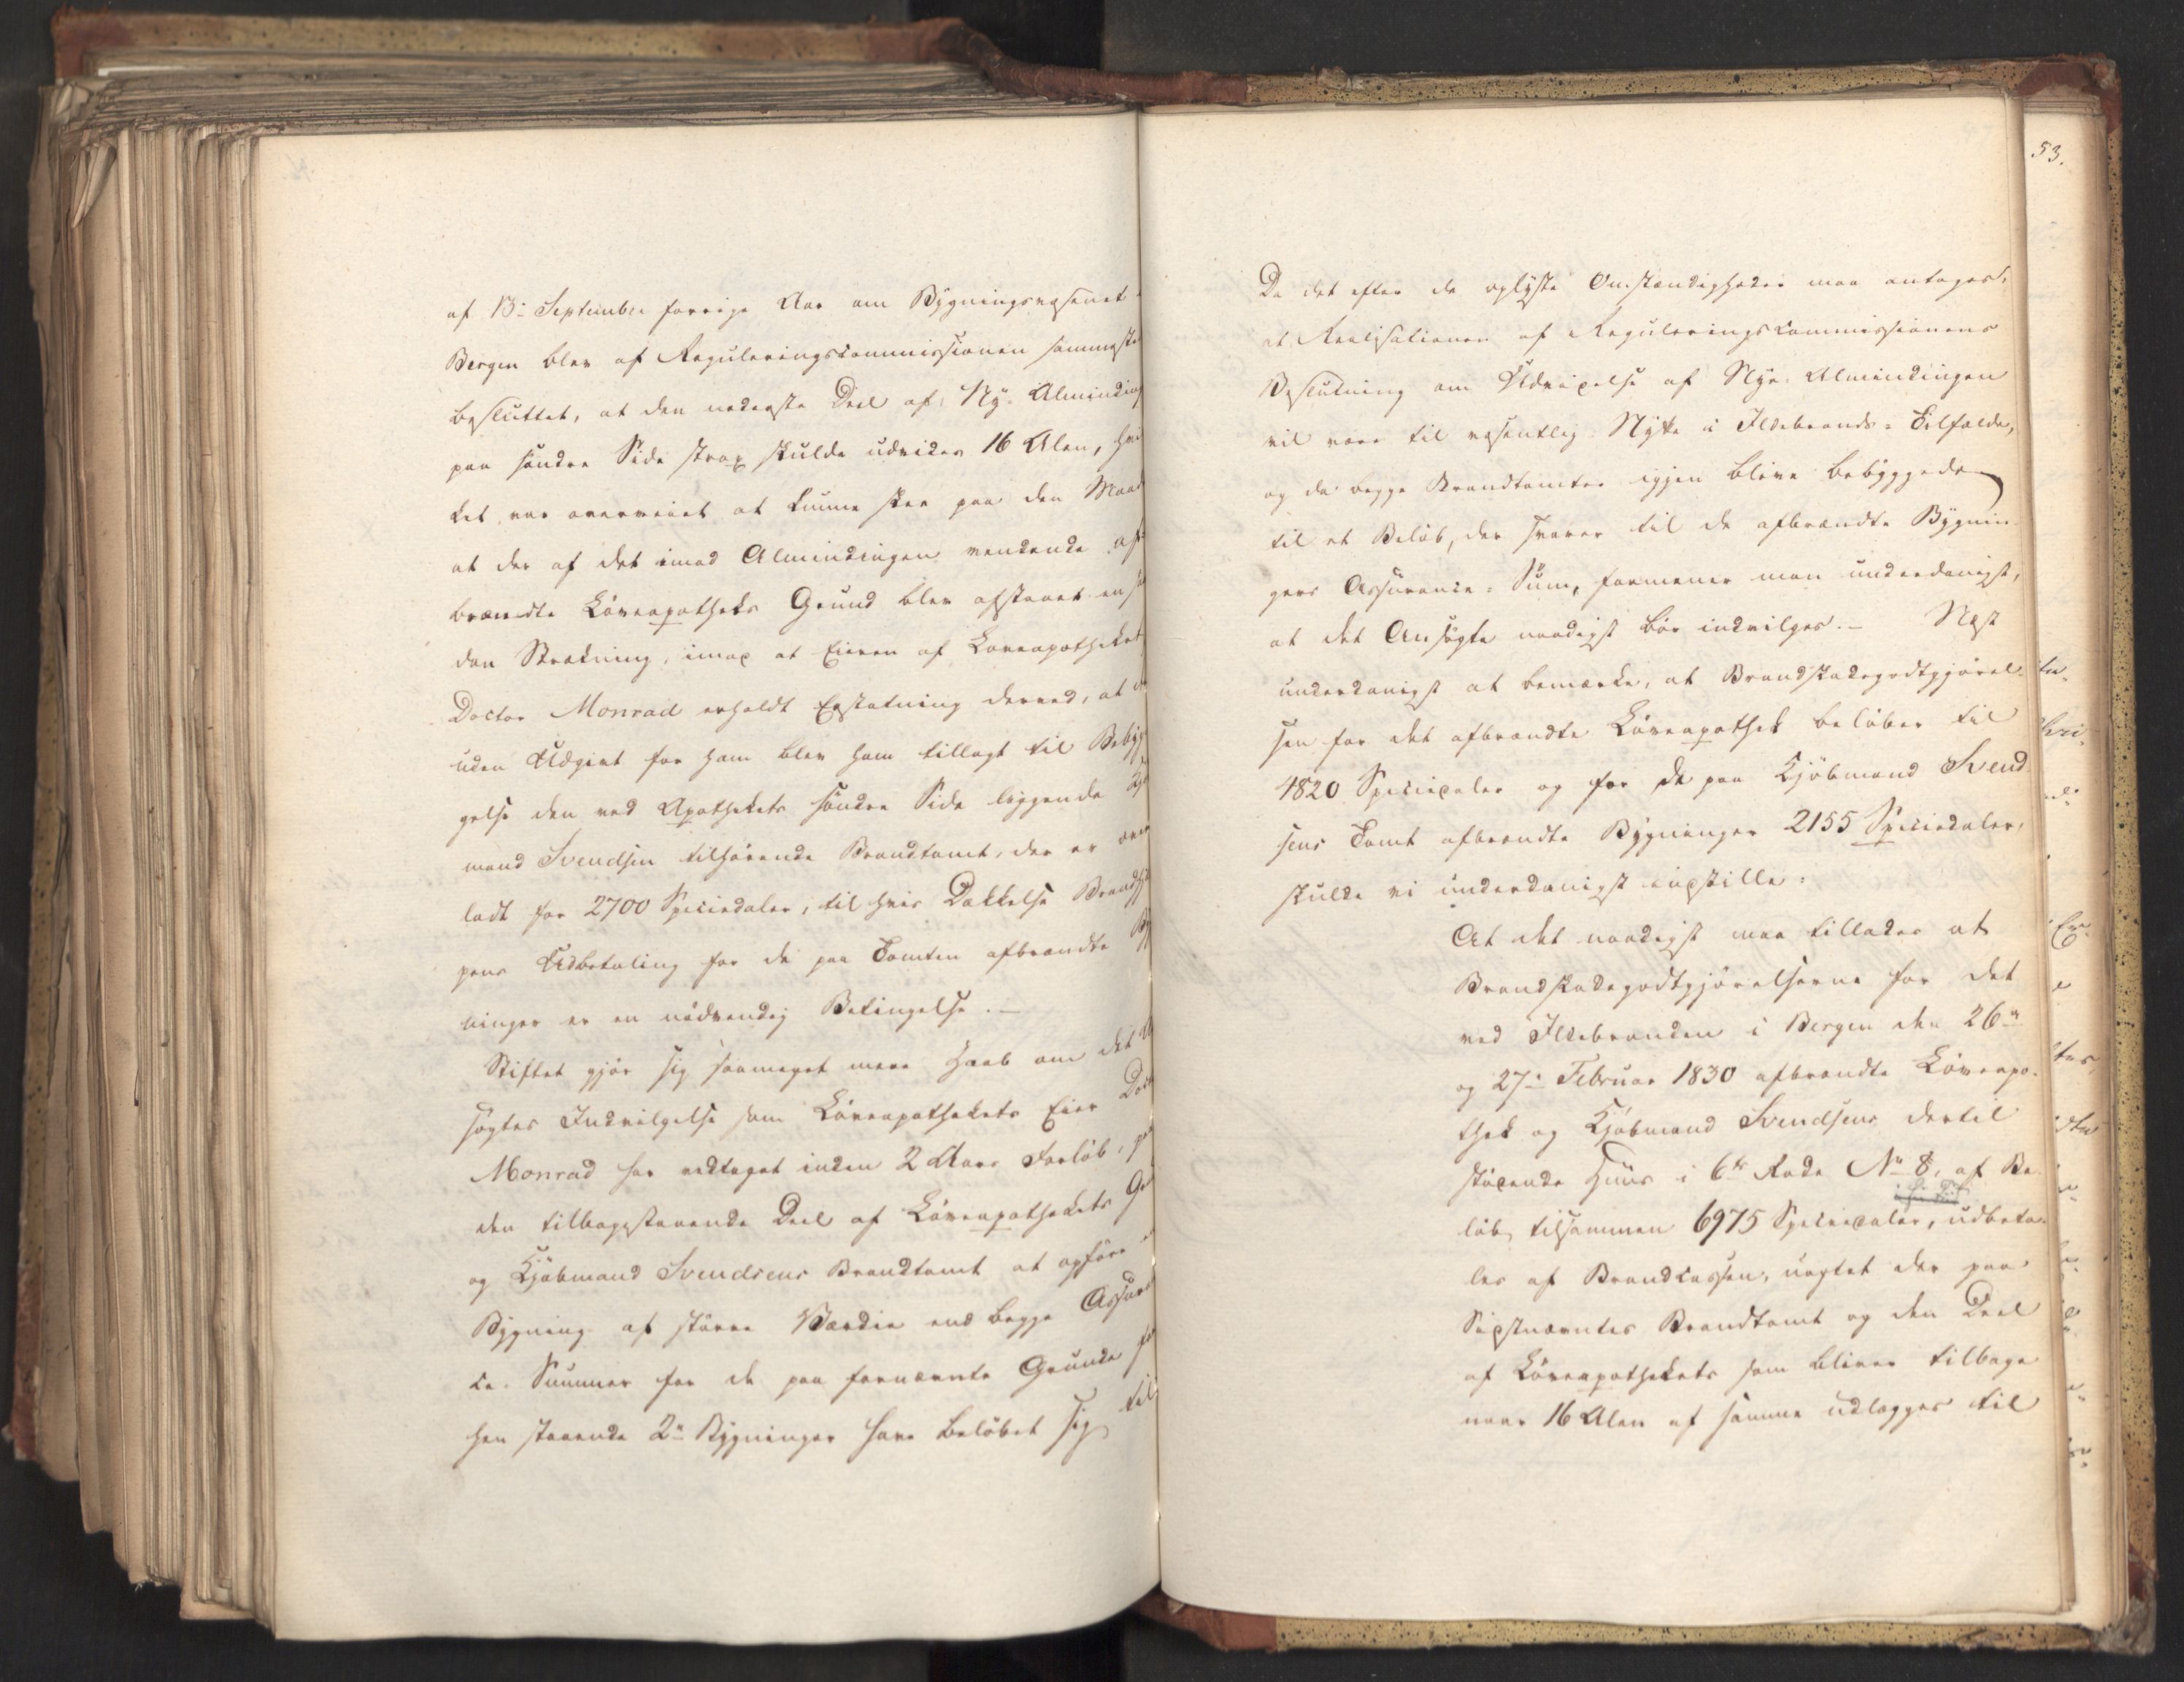 af 13de September forrige Aar om Bygningsvæsenet
Bergen blev af Reguleringscommissionen sammeste
besluttet, at den nederste Deel af Nye Alminding
paa søndre Side strax skulde udvides 16 Alen, hvil
ket var overveiet at kunne skee paa den Maad
at der af det imod Almindingen vendende af-
brændte Løveapotheks Grund blev afstaaet en saa
dan Strækning, imod at Eieren af Løveapotheket
Doctor Monrad erholdt Erstatning derved, at
uden Udgivt for ham blev ham tillagt til Bebyg
gelse den ved Apothekets søndre Side liggende Kjøb
mand Svendsen tilhørende Brandtomt, der er over
ladt for 2700 Speciedaler, til hvis Dækkelse Brand
pens Udbetaling for de paa Tomten afbrændte Byg
ninger er en nødvendig Betingelse. —
Stiftet gjør sig saameget mere Haab om det An
søgtes Indvilgelse som Løveapothekets Eier Doct
Monrad har vedtaget inden 2 Aars Forløb, paa
den tilbagestaaende Deel af Løveapothekets Gr
og Kjøbmand Svendsens Brandtomt at opføre
Bygning af større Værdie end begge Assuran
ce-Summer for de paa fornævnte Grunde for
hen staaende 2de Bygninger have beløbet sig til
53.
Da det efter de oplyste Omstændigheder maa antages,
at Realisationen af Reguleringscommissionens
Beslutning om Udvidelse af Nye-Almindingen
vil være til væsentlig Nytte i Ildebrands-Tilfælde,
og da begge Brandtomter igjen blive bebyggede
til et Beløb, der svarer til de afbrændte Bygnin-
gers Assurance-Sum, formener man underdanigst,
at det Ansøgte naadigst bør indvilges. — Næst
underdanigst at bemærke, at Brandskadegodtgjørel-
sen for det afbrændte Løveapothek beløber til
4820 Speciedaler og for de paa Kjøbmand Svend
sens Tomt afbrændte Bygninger 2155 Speciedaler,
skulde vi underdanigst indstille:
At det naadigst maa tillades at
Brandskadegodtgjørelserne for det
ved Ildebranden i Bergen den 26de
og 27de Februar 1830 afbrændte Løveapo-
thek og Kjøbmand Svendsens dertil
stødende Huus i 6te Rode No 8, af Be-
løb tilsammen 6975 Speciedaler, udbeta-
les af Brandcassen, uagtet der paa
Sidstnævntes Brandtomt og den Deel
af Løveapothekets som bliver tilbage
naar 16 Alen af samme udlægges til